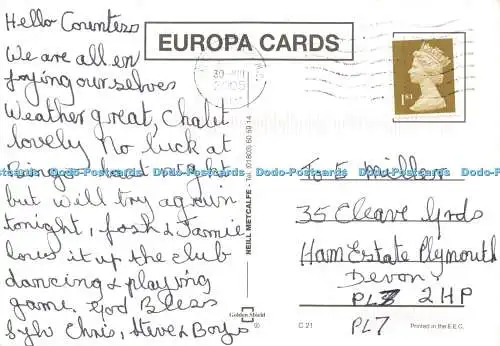 Hello Countess
We are all en
joying ourselves
Weather great, Chalet
lovely No luck at
Bingo last night
but will try again
tonight, Josh & Jamie
love it up the club
dancing & playing
game. God Bless
Chris, Steve & Boys
EUROPA CARDS
30
2005
1ST
To E Miller
35 Cleave Grds
Ham Estate Plymouth
Devon
PL 2 HP
PL7
NEILL METCALFE - Tel. 01803 60 59 14
Golden Shield
C 21
Printed in the E.E.C.
Dodo-Postcards Dodo-Postcards Dodo-Postcards Dodo-Postcards Dodo-Postcards Dodo-Postcards